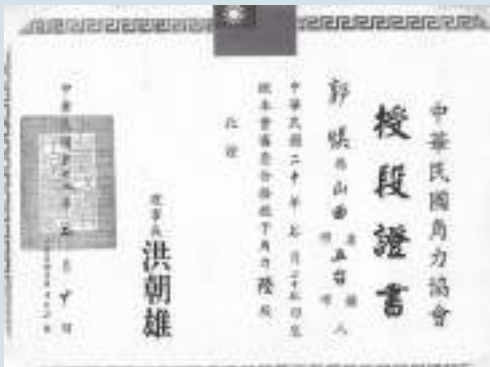 中華民國角力協會
授段證書
郭慎 係 山西 省 五台 縣 人
中華民國二十年 月 日生
經本會審查合格授予角力陸段
此證
理事長 洪朝雄
中華民國 年 五 月 十 日